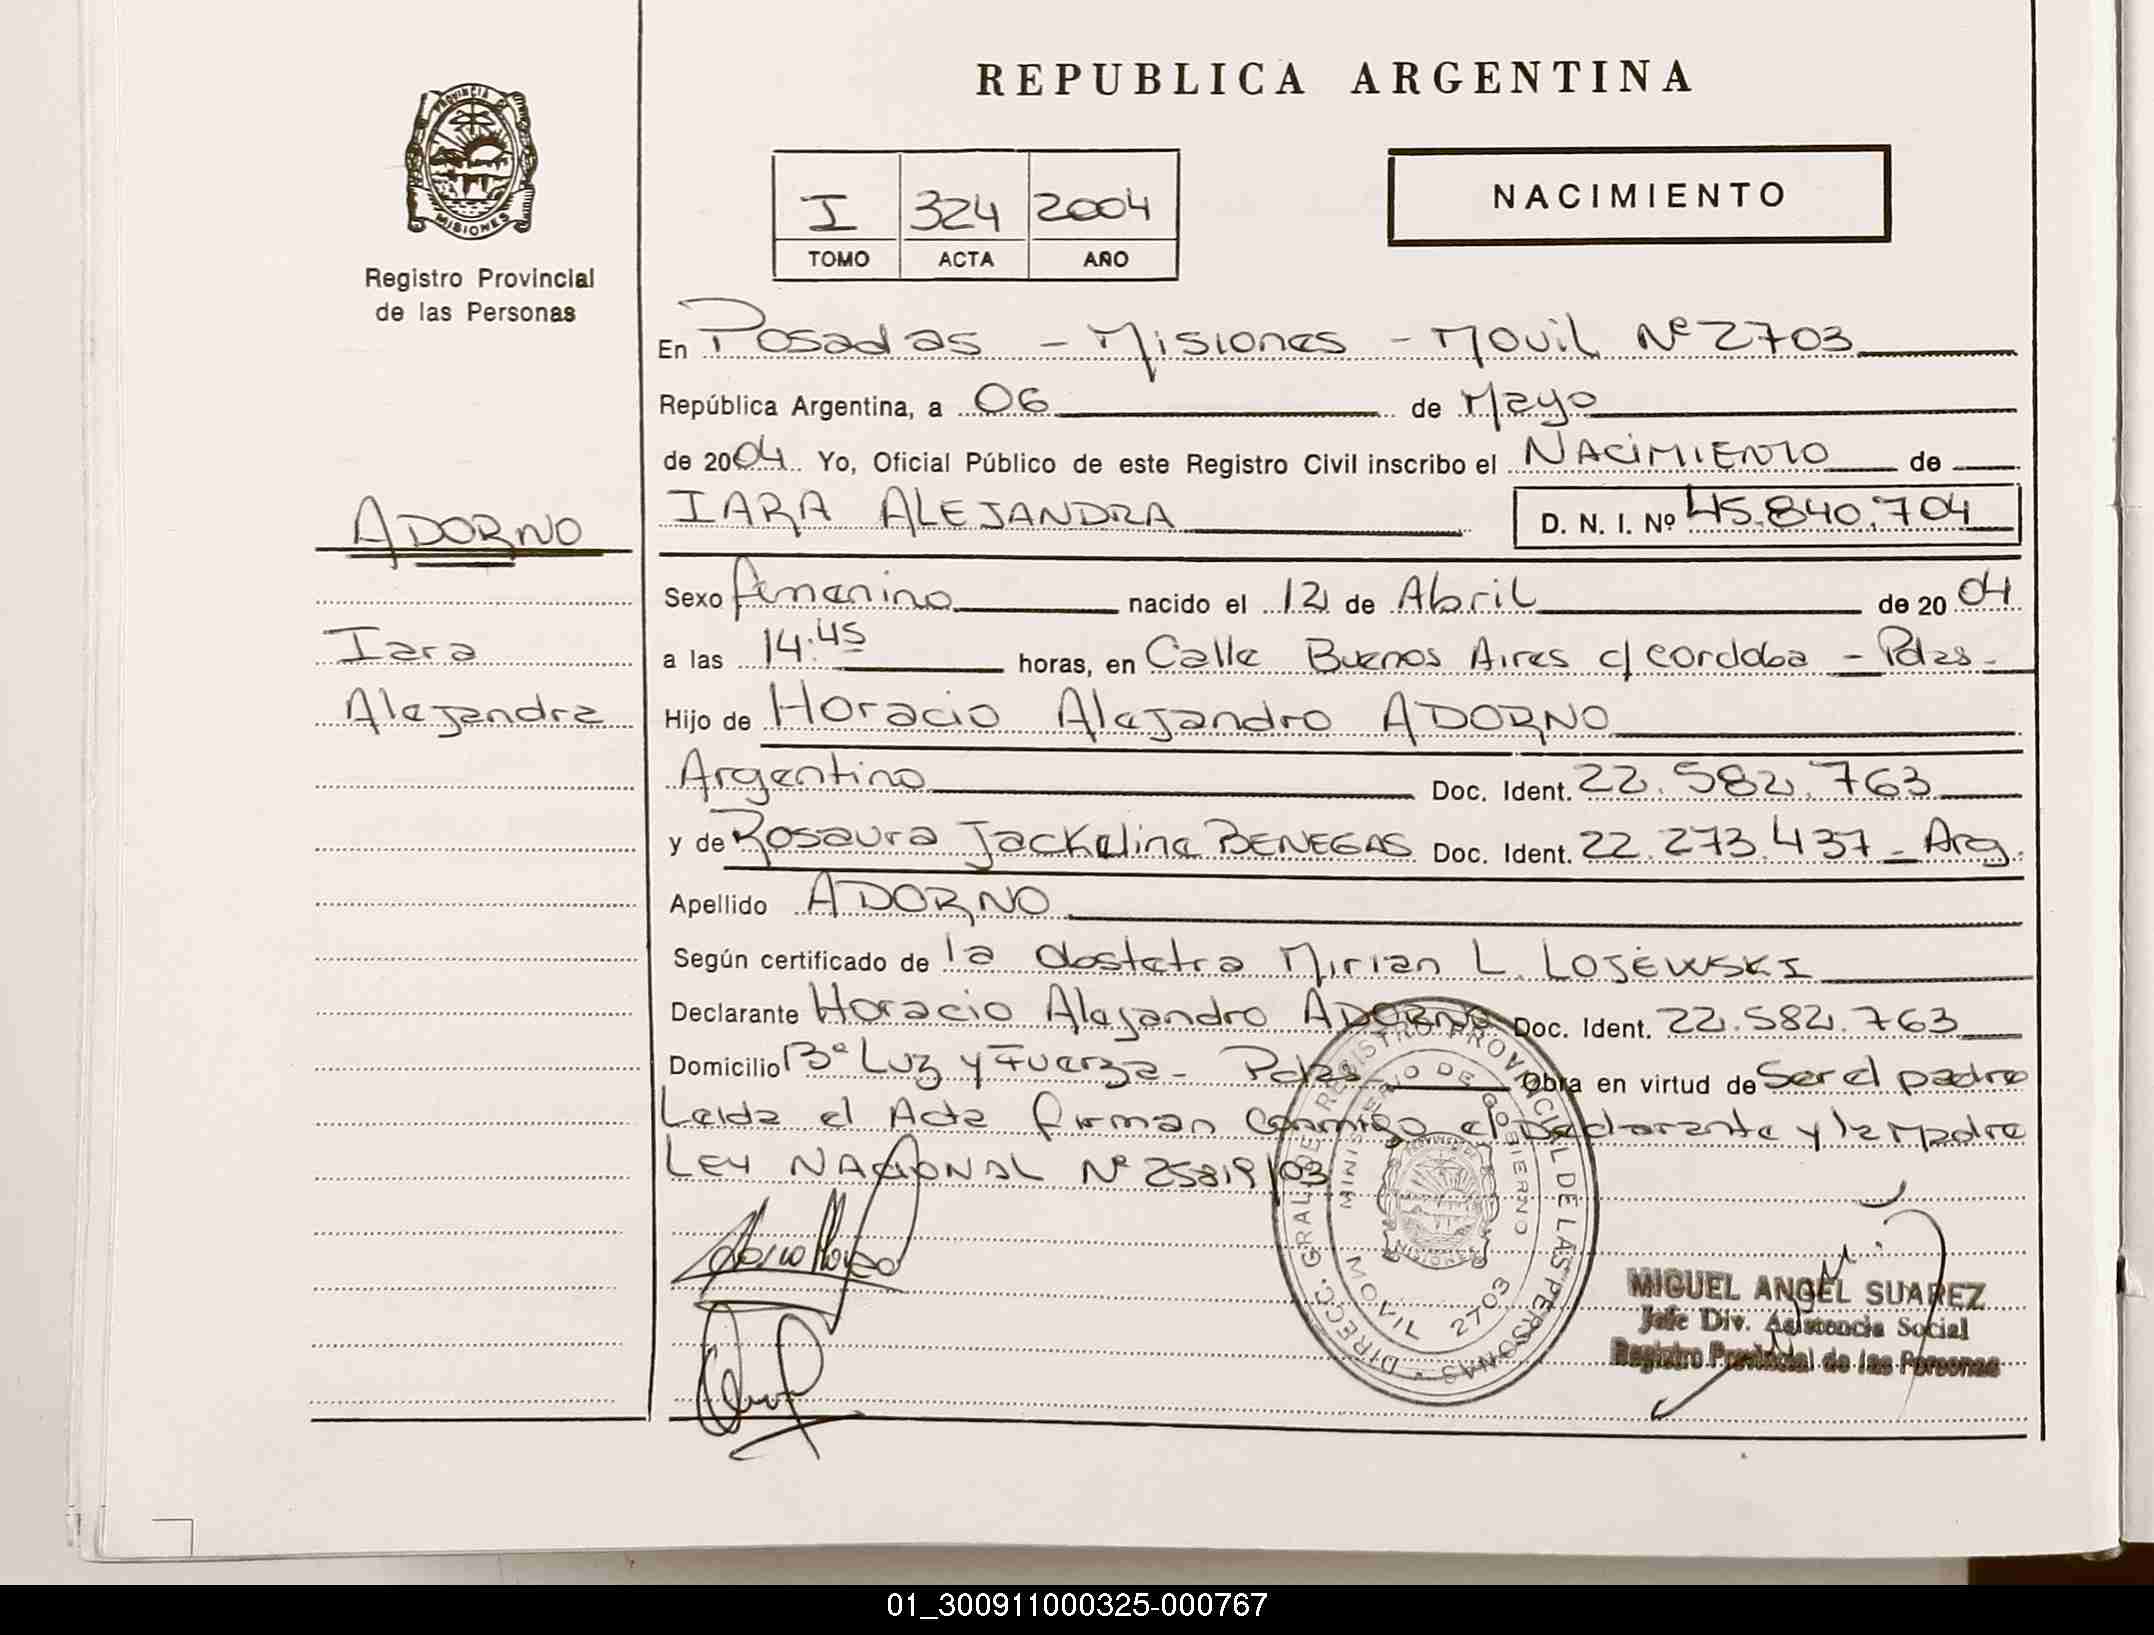 REPUBLICA ARGENTINA
PROVINCIA DE
MISIONES
Registro Provincial
de las Personas
I 324 2004
TOMO ACTA AÑO
NACIMIENTO
En Posadas - Misiones - Movil Nº 2703
República Argentina, a 06 de Mayo
de 2004 Yo, Oficial Público de este Registro Civil inscribo el NACIMIENTO de
IARA ALEJANDRA D. N. I. Nº 45.840.704
ADORNO
Iara
Alejandra
Sexo femenino nacido el 12 de Abril de 2004
a las 14:45 horas, en Calle Buenos Aires c/ cordoba - Pdas -
Hijo de Horacio Alejandro ADORNO
Argentino Doc. Ident. 22.582.763
y de Rosaura Jackeline BENEGAS Doc. Ident. 22.273.437 - Arg.
Apellido ADORNO
Según certificado de la obstetra Mirian L. LOJEWSKI
Declarante Horacio Alejandro ADORNO Doc. Ident. 22.582.763
Domicilio Bº Luz y Fuerza - Pdas Obra en virtud de Ser el padre
Leida el Acta firman conmigo el Declarante y la Madre
LEY NACIONAL Nº 25819/03
DIRECC. GRAL. DE REGISTRO PROVINCIAL DE LAS PERSONAS
MINISTERIO DE GOBIERNO
MISIONES
MOVIL 2703
MIGUEL ANGEL SUAREZ
Jefe Div. Asistencia Social
Registro Provincial de las Personas
01_300911000325-000767